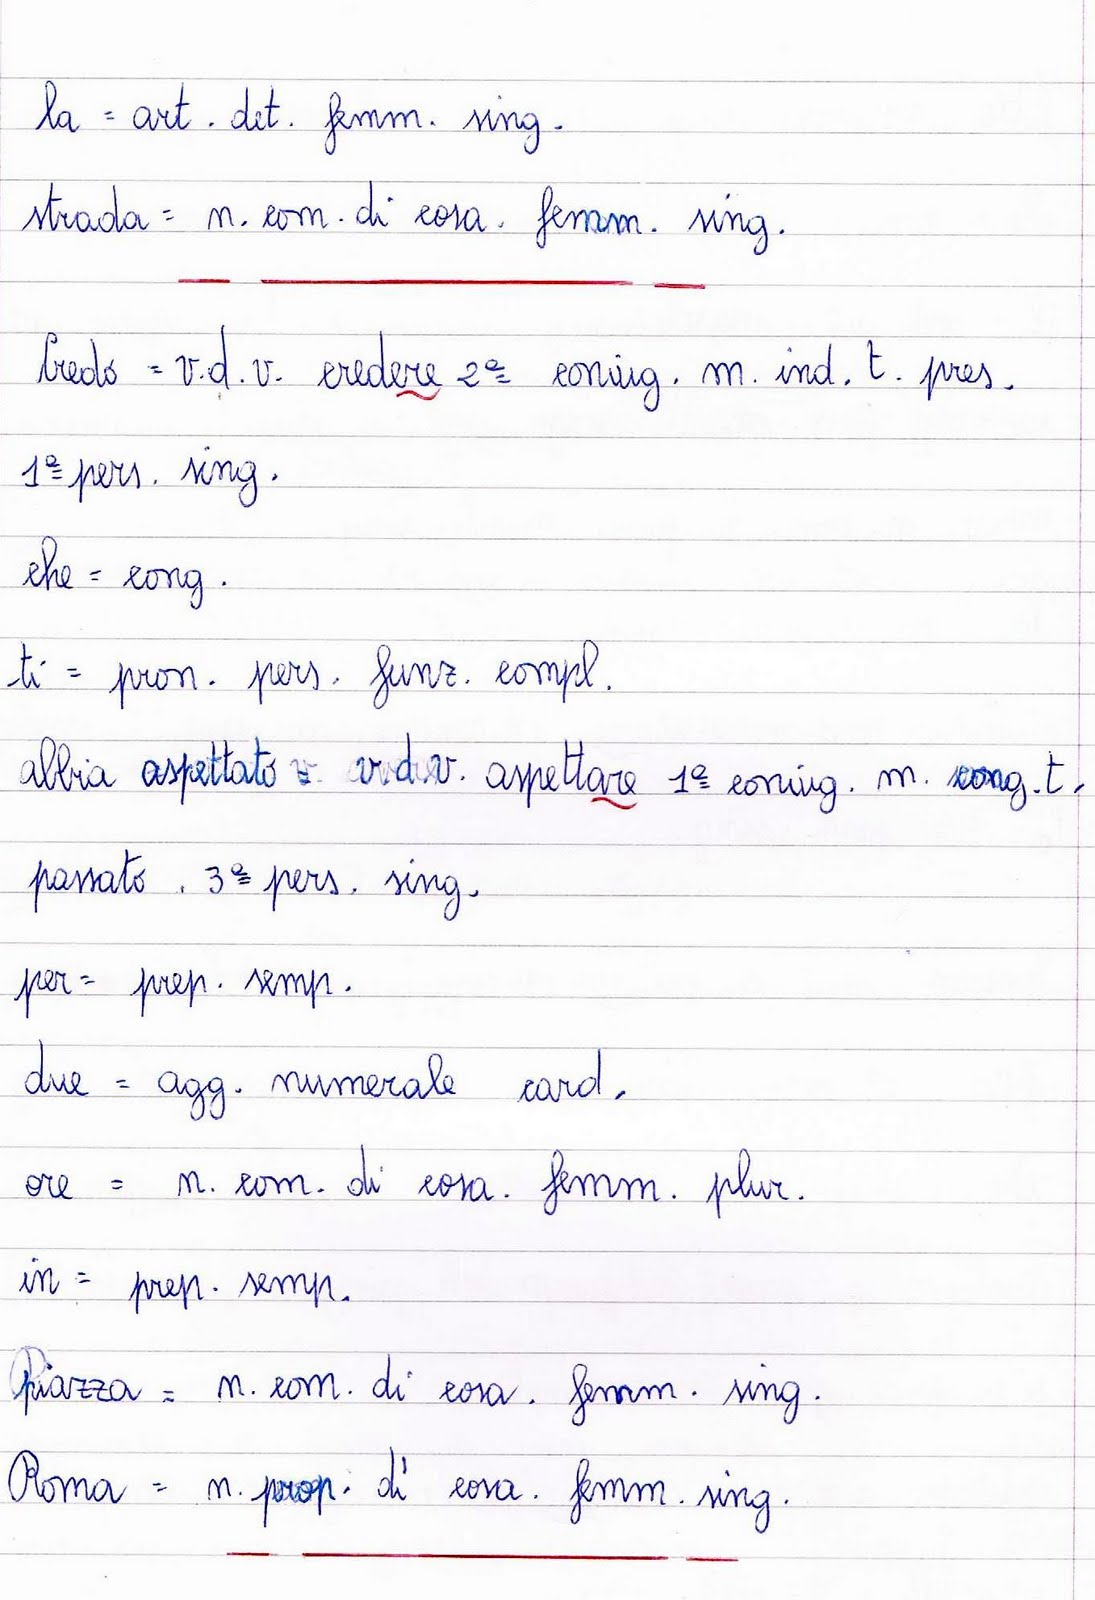 la = art. det. femm. sing.
strada = n. com. di cosa. femm. sing.
Credo = v.d.v. credere 2ª coniug. m. ind. t. pres.
1ª pers. sing.
che = cong.
ti = pron. pers. funz. compl.
abbia aspettato = v.d.v. aspettare 1ª coniug. m. cong. t.
passato. 3ª pers. sing.
per = prep. semp.
due = agg. numerale card.
ore = n. com. di cosa. femm. plur.
in = prep. semp.
piazza = n. com. di cosa. femm. sing.
Roma = n. prop. di cosa. femm. sing.